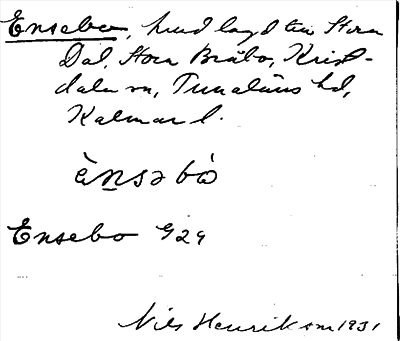 Ensebo, hud lagd till Stora
Dal, Stora Bråbo, Krist-
dala sn, Tunaläns hd,
Kalmar l.
ènsəbò
Ensebo G29
Nils Henrikson 1931